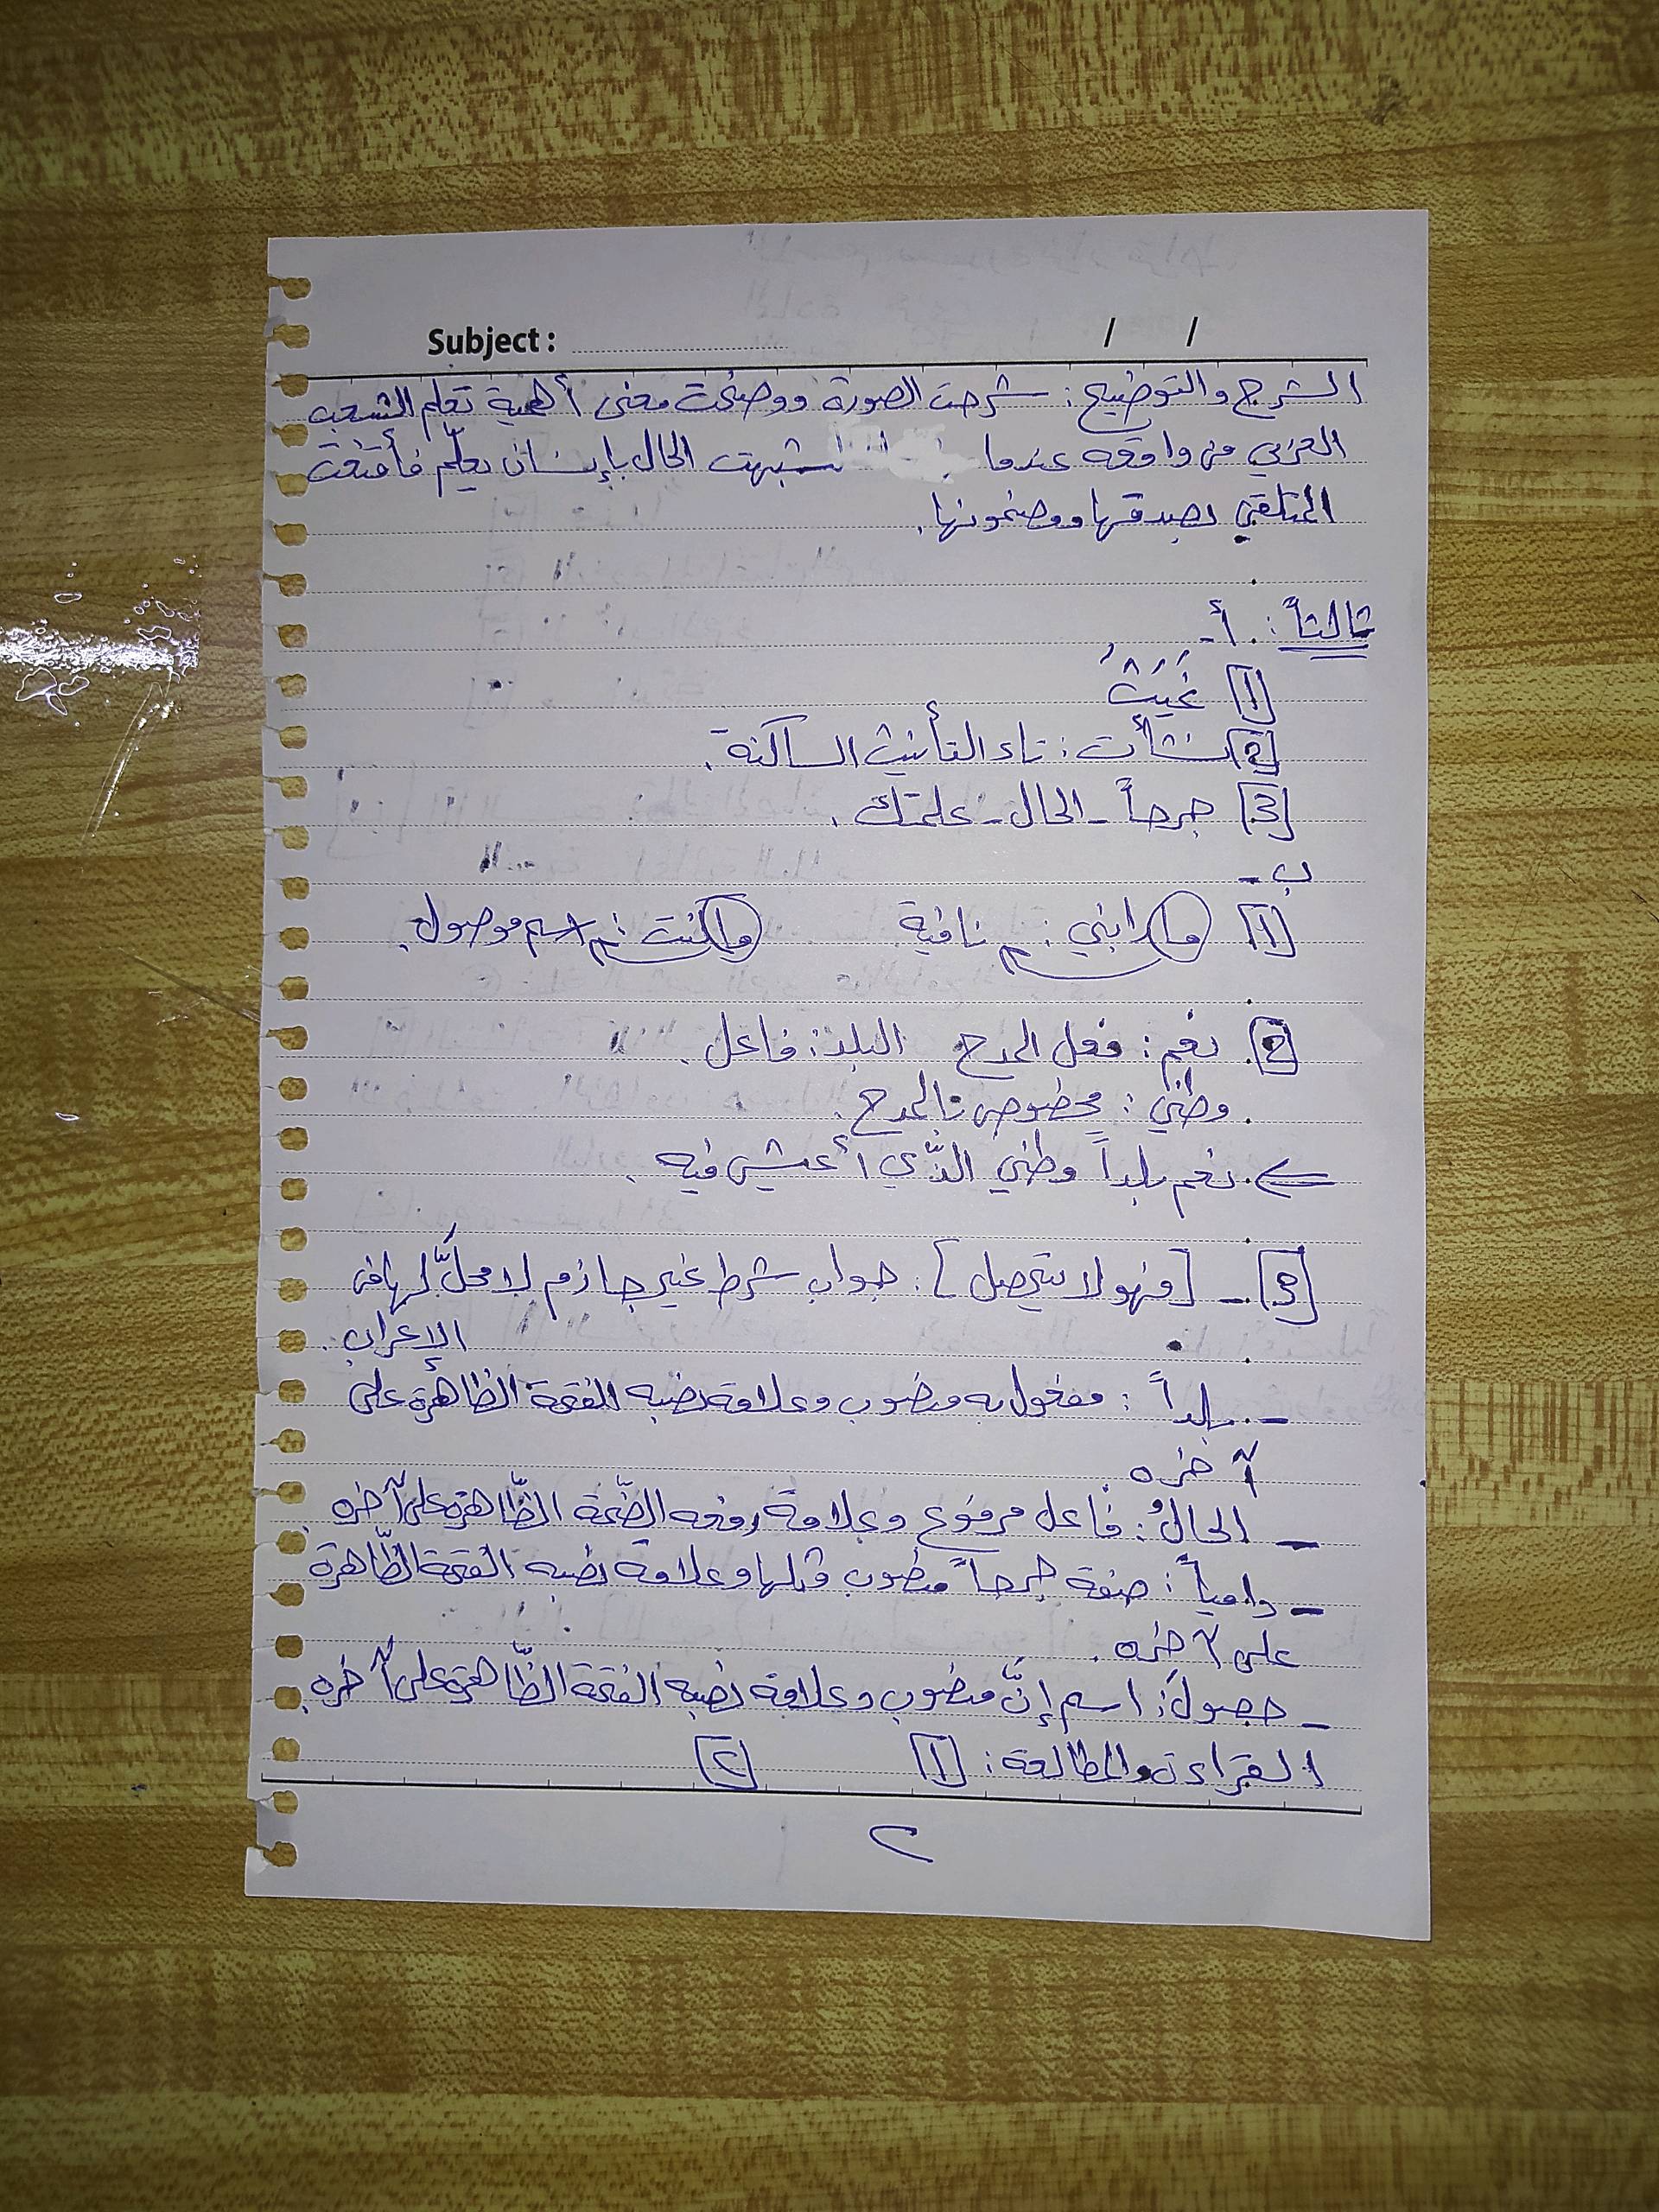 Subject : / /
الشرح والتوضيح : شرحت الصورة ووضحت معنى أهمية تعلم الشعب
العربي من واقعه عندما شبهت الحال بإنسان يعلّم فأقنعت
المتلقي بصدقها ومضمونها.
ثالثاً : أ-
1
2 نشأت : تاء التأنيث الساكنة .
3 جرحاً - الحال - علمتك .
ب -
1 ما رابني : نافية ما كنت : اسم موصول .
2 نعم : فعل المدح البلد : فاعل .
وطني : مخصوص بالمدح .
نعم بلداً وطني الذّي أعيش فيه .
3 - [فهو لا يتحصل] : جواب شرط غير جازم لا محلَّ لها من
الإعراب .
- بلداً : مفعول به منصوب وعلامة نصبه الفتحة الظاهرة على
آخره
- الحالُ : فاعل مرفوع وعلامة رفعه الضّمة الظّاهرة على آخره .
- دامياً : صفة جرحاً منصوب قبلها وعلامة نصبه الفتحة الظّاهرة
على آخره .
- حصولَ : اسم إنَّ منصوب وعلامة نصبه الفتحة الظّاهرة على آخره .
القراءة والمطالعة : 1 2
٢